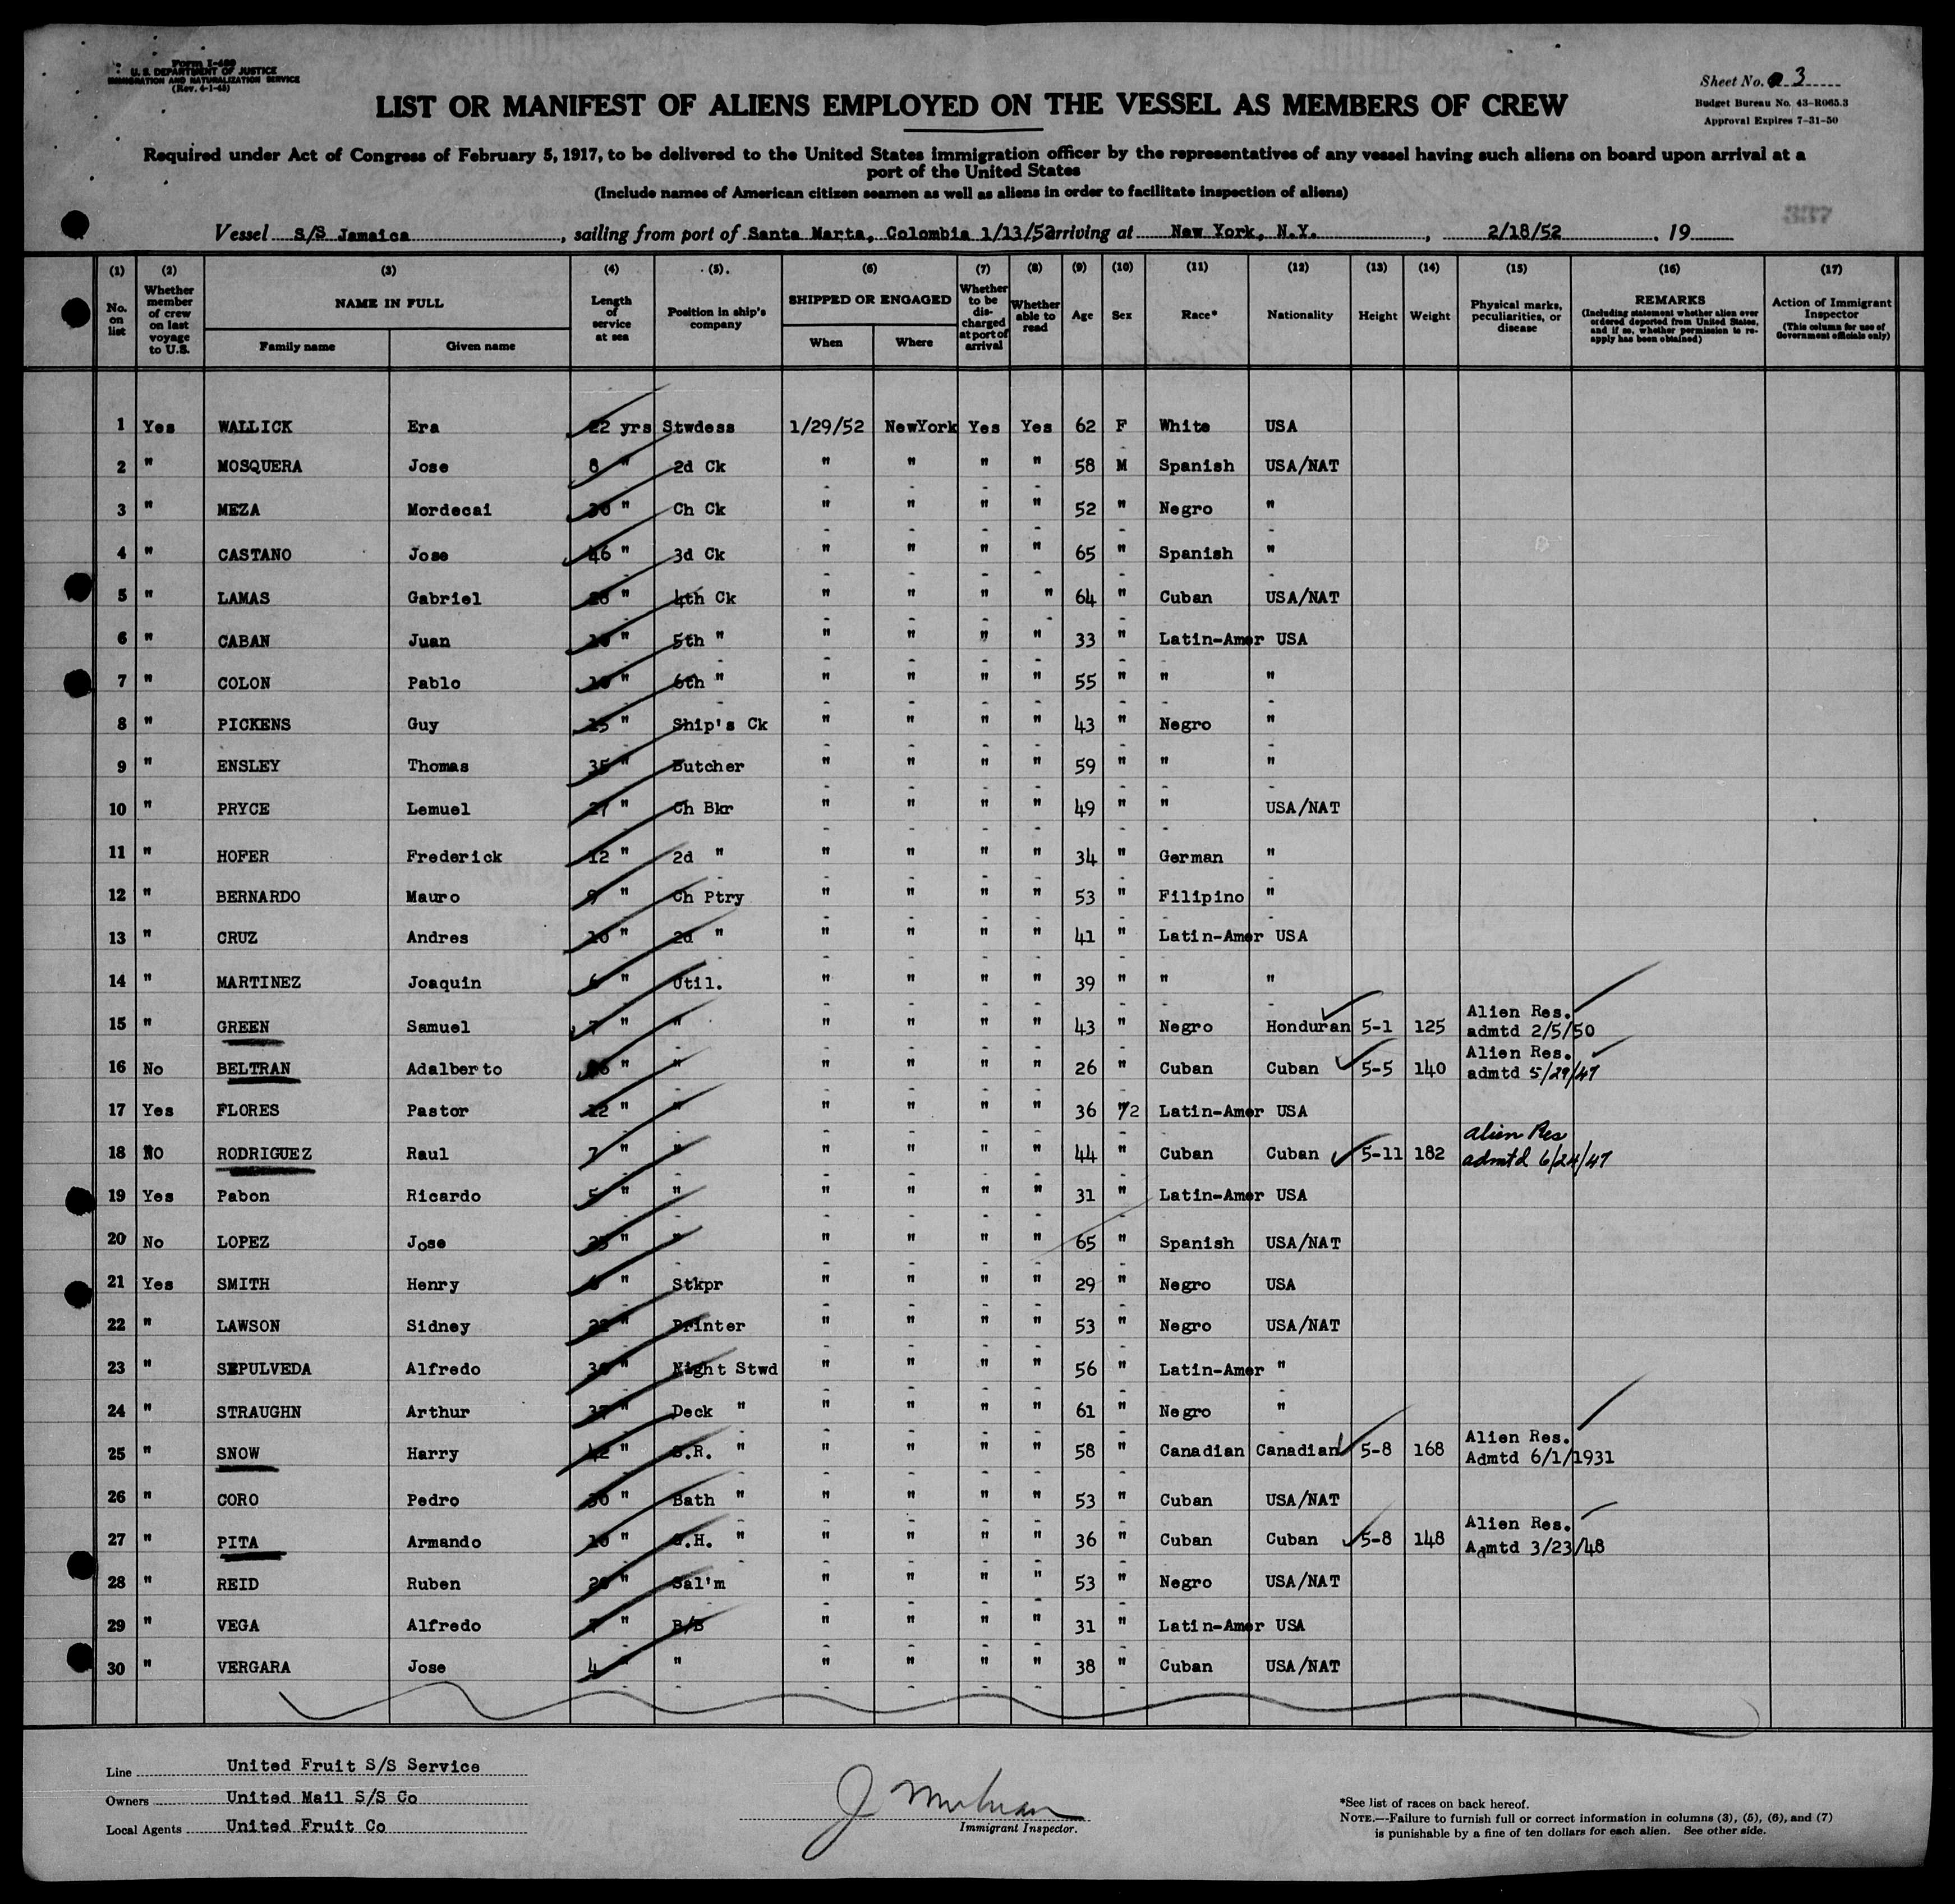 Form I-480
U. S. DEPARTMENT OF JUSTICE
IMMIGRATION AND NATURALIZATION SERVICE
(Rev. 4-1-48)
Sheet No. 3
Budget Bureau No. 43-R065.3
Approval Expires 7-31-50
LIST OR MANIFEST OF ALIENS EMPLOYED ON THE VESSEL AS MEMBERS OF CREW
Required under Act of Congress of February 5, 1917, to be delivered to the United States immigration officer by the representatives of any vessel having such aliens on board upon arrival at a
port of the United States
(Include names of American citizen seamen as well as aliens in order to facilitate inspection of aliens)
337
Vessel S/S Jamaica, sailing from port of Santa Marta, Colombia 1/13/52 arriving at New York, N.Y., 2/18/52, 19
(1) (2) (3) (4) (5). (6) (7) (8) (9) (10) (11) (12) (13) (14) (15) (16) (17)
No. on list Whether member of crew on last voyage to U.S. NAME IN FULL Family name Given name Length of service at sea Position in ship's company SHIPPED OR ENGAGED When Where Whether to be discharged at port of arrival Whether able to read Age Sex Race* Nationality Height Weight Physical marks, peculiarities, or disease REMARKS (Including statement whether alien ever ordered deported from United States, and if so, whether permission to re-apply has been obtained) Action of Immigrant Inspector (This column for use of Government officials only)
1 Yes WALLICK Era 22 yrs Stwdess 1/29/52 NewYork Yes Yes 62 F White USA
2 " MOSQUERA Jose 8 " 2d Ck " " " " 58 M Spanish USA/NAT
3 " MEZA Mordecai 30 " Ch Ck " " " " 52 " Negro "
4 " CASTANO Jose 46 " 3d Ck " " " " 65 " Spanish "
5 " LAMAS Gabriel " 4th Ck " " " " 64 " Cuban USA/NAT
6 " CABAN Juan " 5th " " " " " 33 " Latin-Amer USA
7 " COLON Pablo " 6th " " " " " 55 " " "
8 " PICKENS Guy 15 " Ship's Ck " " " " 43 " Negro "
9 " ENSLEY Thomas 35 " Butcher " " " " 59 " " "
10 " PRYCE Lemuel 27 " Ch Bkr " " " " 49 " " USA/NAT
11 " HOFER Frederick 12 " 2d " " " " " 34 " German "
12 " BERNARDO Mauro 9 " Ch Ptry " " " " 53 " Filipino "
13 " CRUZ Andres 10 " 2d " " " " " 41 " Latin-Amer USA
14 " MARTINEZ Joaquin 6 " Util. " " " " 39 " " "
15 " GREEN Samuel 7 " " " " " " 43 " Negro Honduran 5-1 125 Alien Res. admtd 2/5/50
16 No BELTRAN Adalberto " " " " " " 26 " Cuban Cuban 5-5 140 Alien Res. admtd 5/29/47
17 Yes FLORES Pastor 12 " " " " " " 36 "72 Latin-Amer USA
18 NO RODRIGUEZ Raul 7 " " " " " " 44 " Cuban Cuban 5-11 182 alien Res admtd 6/24/47
19 Yes Pabon Ricardo 5 " " " " " " 31 " Latin-Amer USA
20 No LOPEZ Jose 25 " " " " " " 65 " Spanish USA/NAT
21 Yes SMITH Henry 6 " Stkpr " " " " 29 " Negro USA
22 " LAWSON Sidney 22 " Printer " " " " 53 " Negro USA/NAT
23 " SEPULVEDA Alfredo 30 " Night Stwd " " " " 56 " Latin-Amer "
24 " STRAUGHN Arthur 37 " Deck " " " " " 61 " Negro "
25 " SNOW Harry 42 " S.R. " " " " " 58 " Canadian Canadian 5-8 168 Alien Res. Admtd 6/1/1931
26 " CORO Pedro 30 " Bath " " " " " 53 " Cuban USA/NAT
27 " PITA Armando 10 " G.H. " " " " " 36 " Cuban Cuban 5-8 148 Alien Res. Admtd 3/23/48
28 " REID Ruben " Sal'm " " " " 53 " Negro USA/NAT
29 " VEGA Alfredo 7 " B/B " " " " 31 " Latin-Amer USA
30 " VERGARA Jose 4 " " " " " " 38 " Cuban USA/NAT
Line United Fruit S/S Service
Owners United Mail S/S Co
Local Agents United Fruit Co
Immigrant Inspector.
*See list of races on back hereof.
NOTE.—Failure to furnish full or correct information in columns (3), (5), (6), and (7)
is punishable by a fine of ten dollars for each alien. See other side.